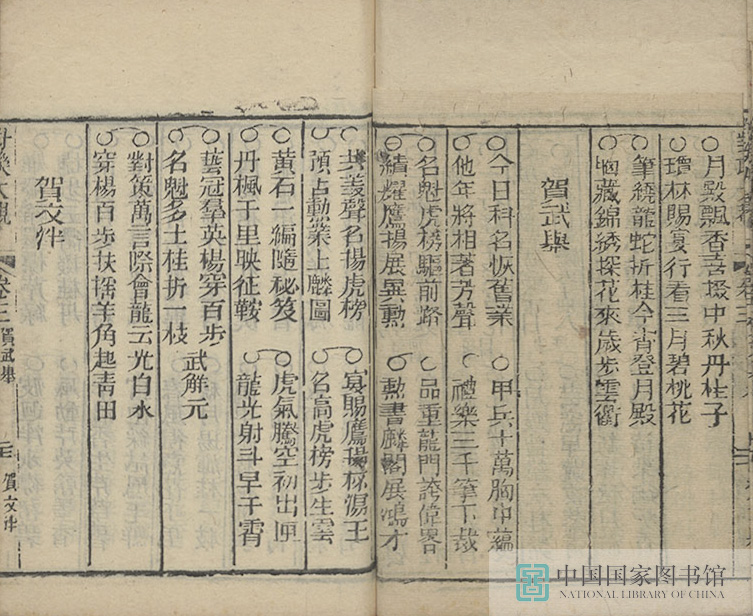 月殿飄香喜掇中秋丹桂子
瓊林賜宴行看三月碧桃花
筆繞龍蛇折桂今宵登月殿
胸藏錦綉探花來歲步雲衢
賀武舉
今日科名恢舊業 甲兵十萬胸中蘊
他年將相著芳聲 禮樂三千筆下裁
名魁虎榜驅前路 品重龍門誇偉畧
績耀鷹揚展異勳 勲書麟閣展鴻才
共羨聲名揚虎榜 宴賜鷹揚杯湯王
預占勳業上麟圖 名高虎榜步生雲
黃石一編隨秘笈 虎氣騰空初出匣
丹楓千里映征鞍 龍光射斗早干霄
藝冠羣英楊穿百步
名魁多士桂折一枝
武解元
對策萬言際會龍云光白水
穿楊百步扶搖羊角起青田
賀文泮
大觀 卷三 賀武舉 賀文泮
中国国家图书馆
NATIONAL LIBRARY OF CHINA